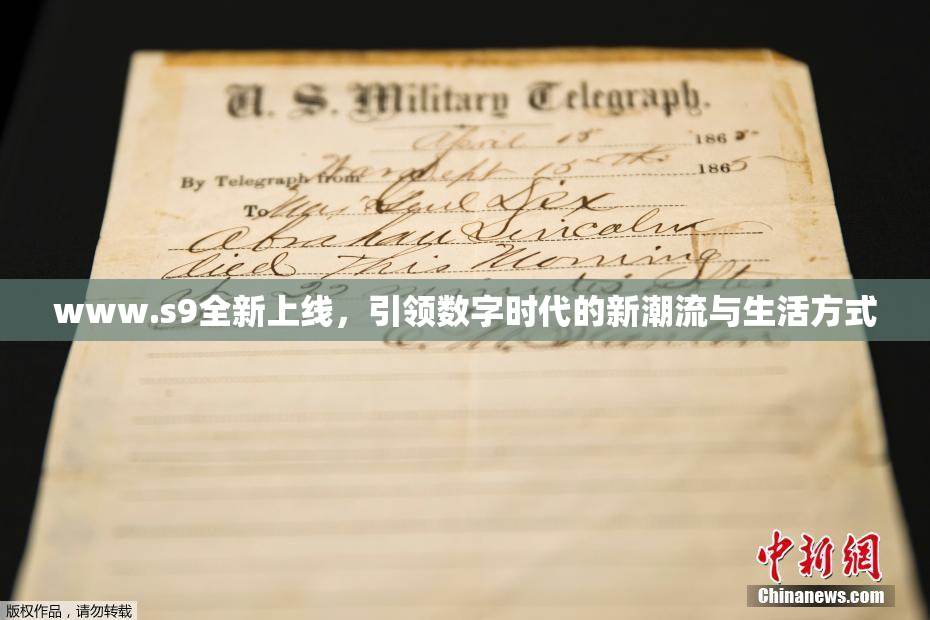 U. S. Military Telegraph.
April 15 1865
By Telegraph from War Dept 15th 1865
To Maj Genl Dix
Abraham Lincoln
died This Morning
22 minutes after
www.s9全新上线，引领数字时代的新潮流与生活方式
中新网
Chinanews.com
版权作品，请勿转载